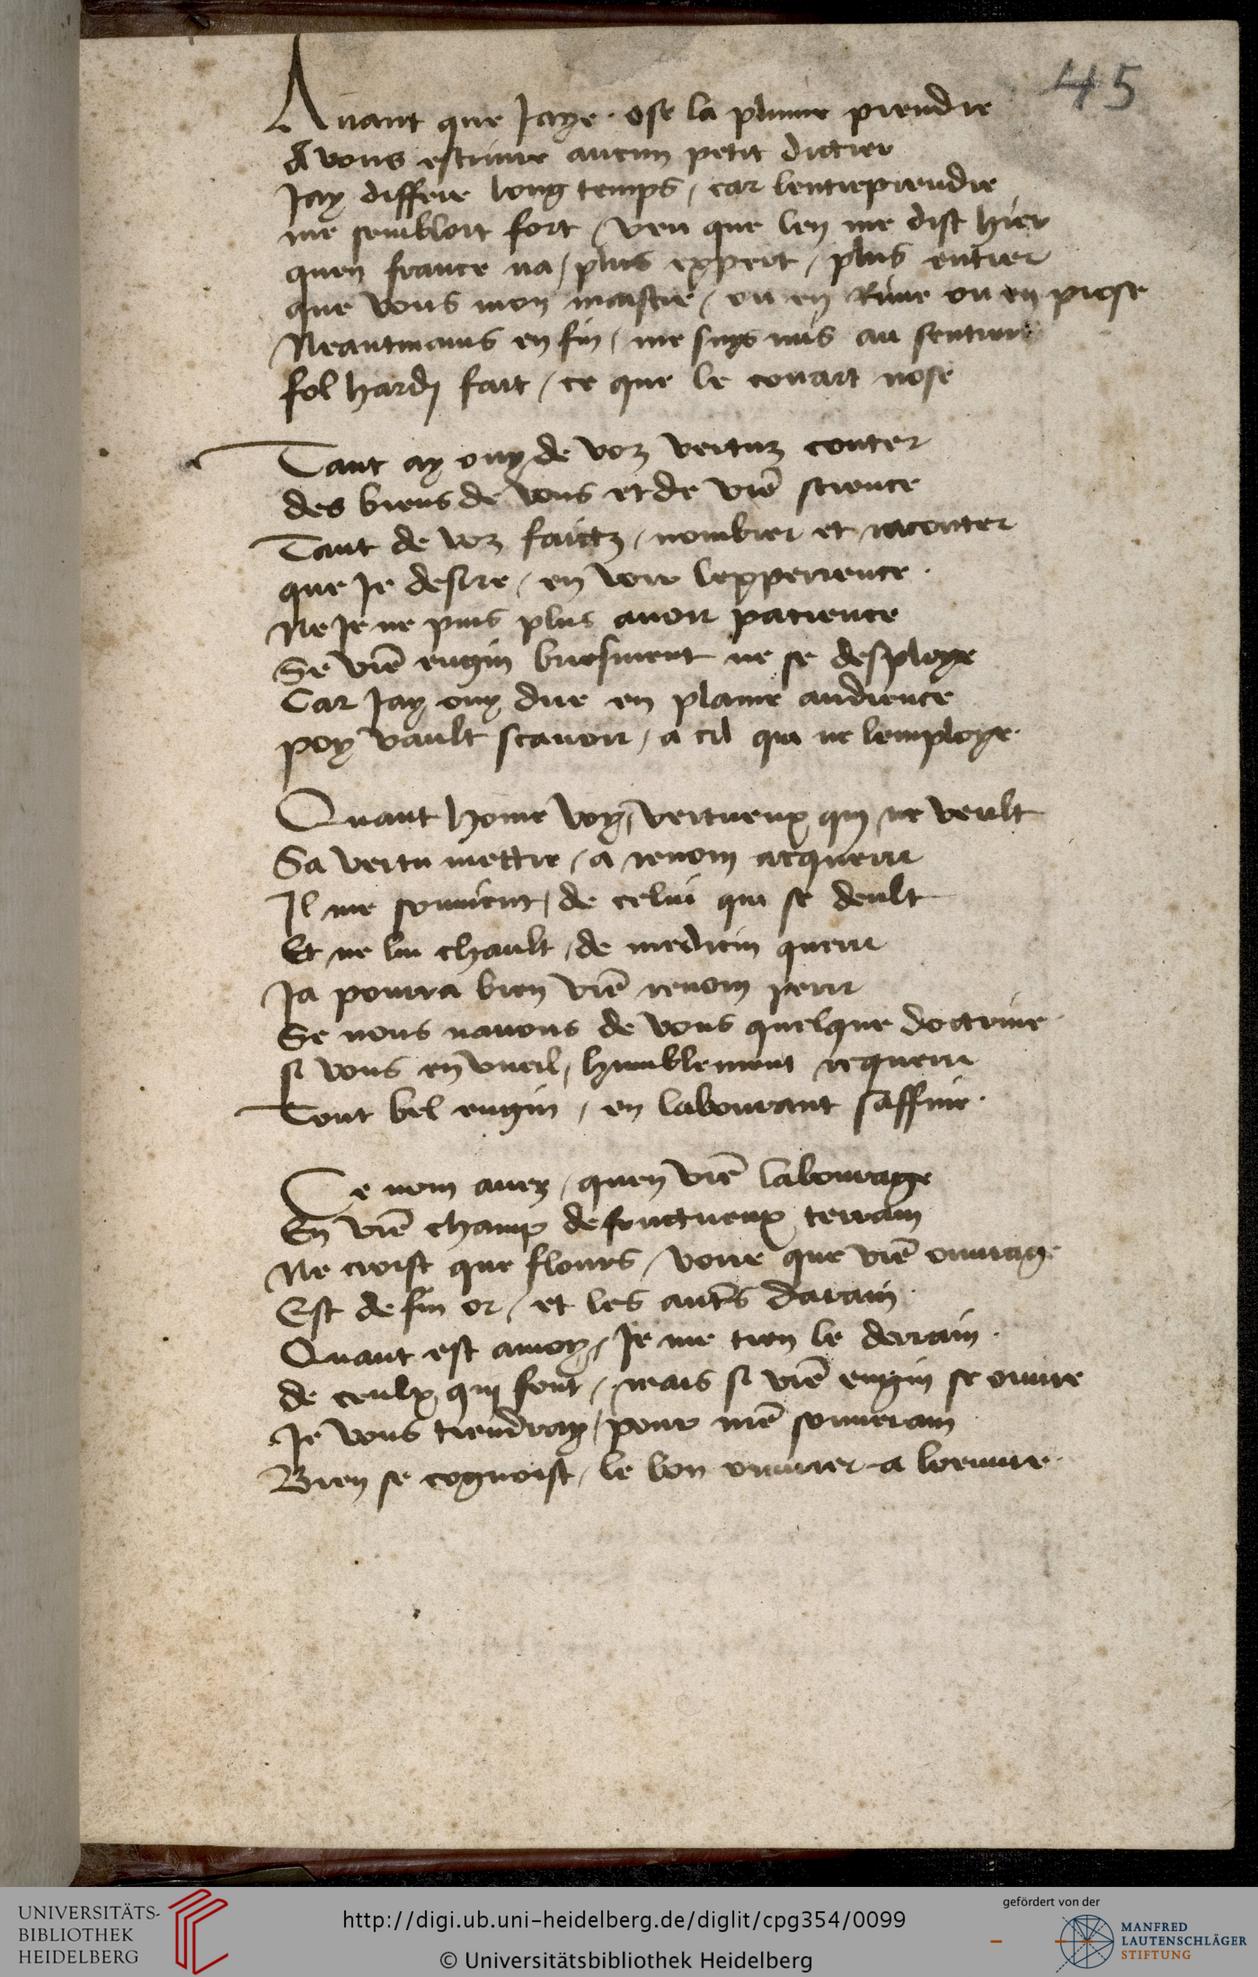 45
Auant que Jaye ose la plume prendre
A vous escrire aucun petit dictier
Jay differe long temps / car lentreprendre
me sembloit fort / veu que len me dist hier
quen france na / plus expert / plus entier
que vous mon maistre / ou en Rime ou en prose
Neantmains en fin / me suys mis au sentier
fol hardj fait / ce que le couart nose
Tant ay ouy de voz vertuz conter
des biens de vous et de vr̄e science
Tant de voz faictz / nombrer et raconter
que Je desire / en voir lexperience .
Ne Je ne puis plus auoir patience
Se vr̄e engin briefment ne se desploye
Car Jay ouy dire en plaine audience
poy vault scauoir / a cil qui ne lemploye .
Quant home voy / vertueux qui ne veult
Sa vertu mettre / a renom acquerir
Il me souuient / de celui qui se deult
Et ne lui chault / de medicin querir
Ja pourra bien vr̄e renom perir
Se nous nauons de vous quelque doctrine .
si vous en vueil / humblement requerir
Tout bel engin / en labourant saffine .
Le nom auez / quen vr̄e labourage
En vr̄e champ de fructueux terrain
Ne croist que flours / voire que vr̄e ouurage
Est de fin or / et les autrēs darain .
Quant est amoy / Je me tien le derrain .
de ceulx qui font / mais si vr̄e engin se ouure
Je vous tiendray / pour mē souuerain
Bien se cognoist / le bon ouurier a loeuure .
UNIVERSITÄTS-
BIBLIOTHEK
HEIDELBERG
http://digi.ub.uni-heidelberg.de/diglit/cpg354/0099
© Universitätsbibliothek Heidelberg
gefördert von der
MANFRED
LAUTENSCHLÄGER
STIFTUNG